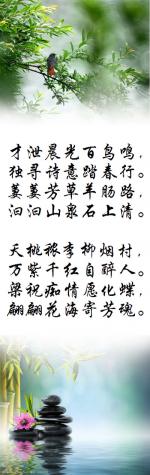 才泄晨光百鸟鸣，
独寻诗意踏春行。
萋萋芳草羊肠路，
汩汩山泉石上清。
天桃秾李柳烟村，
万紫千红自醉人。
梁祝痴情愿化蝶，
翩翩花海寄芳魂。